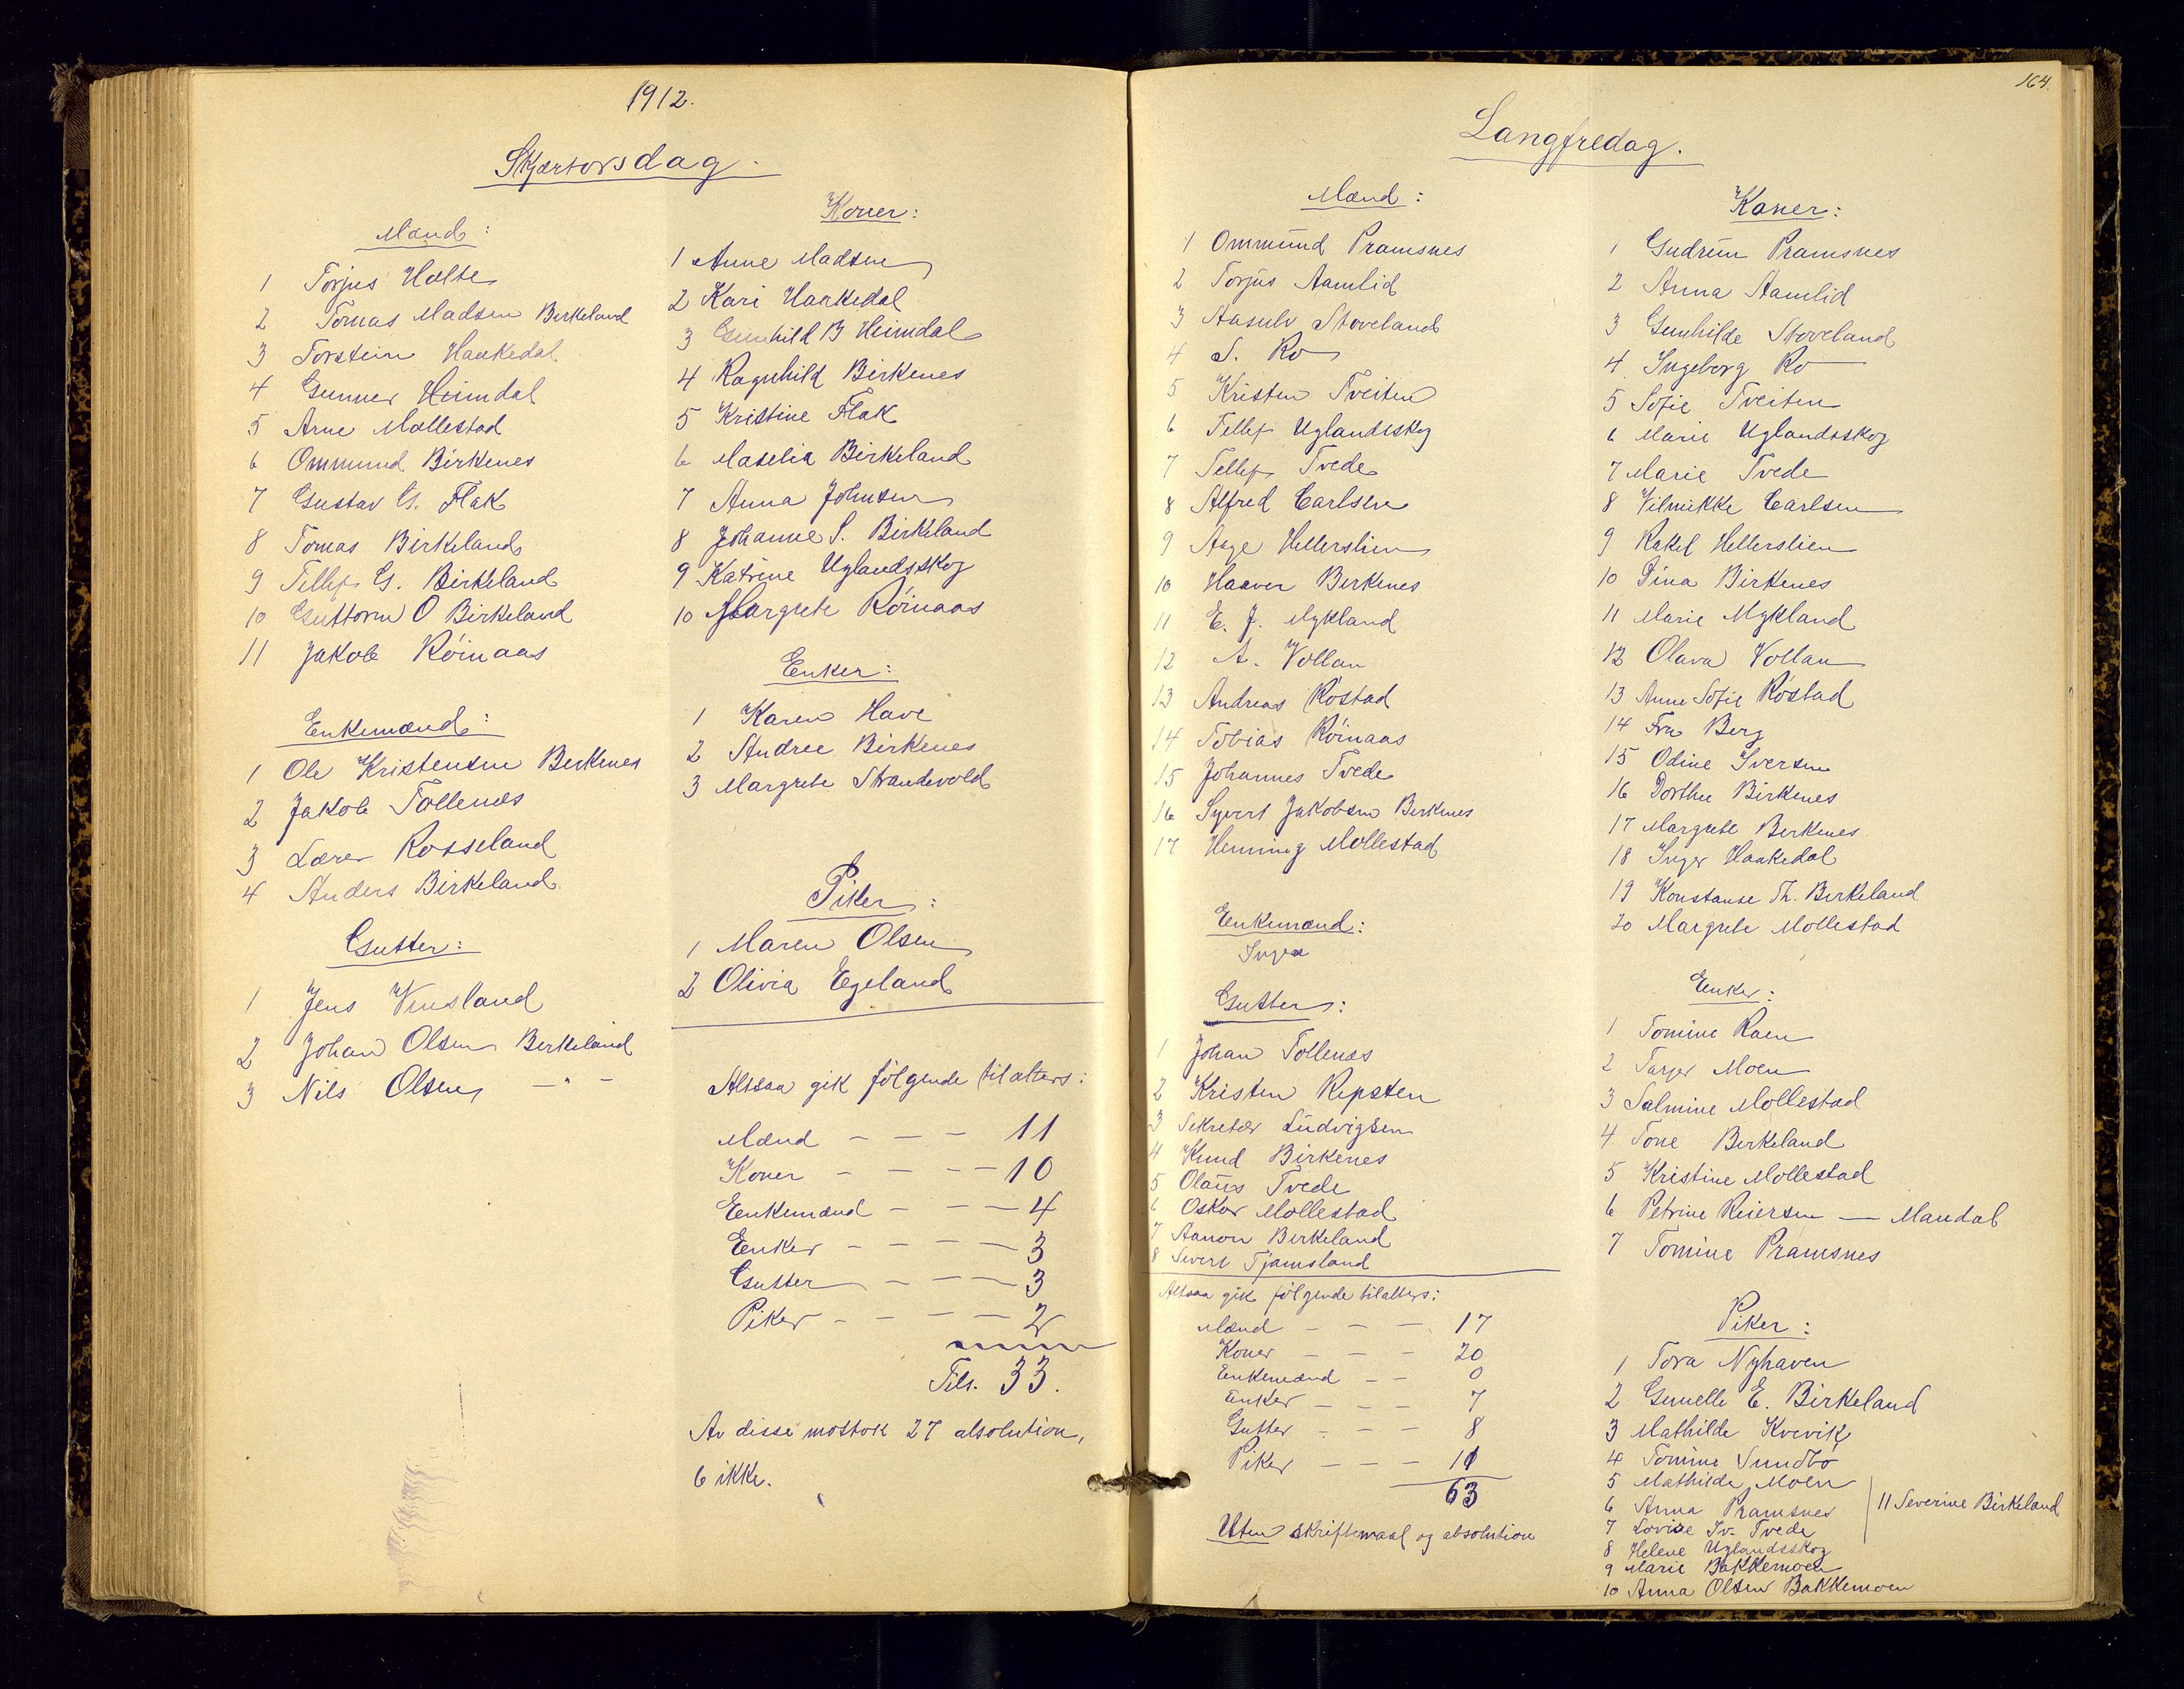 1912.
Skjærtorsdag.
Mænd:
1 Torjus Holte
2 Tomas Madsen Birkeland
3 Torstein Haakedal
4 Gunner Heimdal
5 Arne Mollestad
6 Ommund Birkenes
7 Gustav G. Flak
8 Tomas Birkeland
9 Tellef G. Birkeland
10 Guttorm O Birkeland
11 Jakob Röinaas
Enkemænd:
1 Ole Kristensen Birkenes
2 Jakob Tollenæs
3 Lærer Rosseland
4 Anders Birkeland
Gutter:
1 Jens Vinsland
2 Johan Olsen Birkeland
3 Nils Olsen — " —
Koner:
1 Anne Madsen
2 Kari Haakedal
3 Gunhild B Heimdal
4 Ragnhild Birkenes
5 Kristine Flak
6 Maselia Birkeland
7 Anna Johnsen
8 Johanne S. Birkeland
9 Katrine Uglandsskog
10 Margrete Röinaas
Enker:
1 Karen Have
2 Andree Birkenes
3 Margrete Strandevold
Piker:
1 Maren Olsen
2 Olivia Egeland
Altsaa gik følgende til alters:
Mænd — — — 11
Koner — — — — 10
Enkemænd — — — 4
Enker — — — — 3
Gutter — — — — 3
Piker — — — — 2
Tils. 33.
Av disse mottok 27 absolution,
6 ikke.
164.
Langfredag.
Mænd:
1 Ommund Pramsnes
2 Torjus Aamlid
3 Aasulv Stoveland
4 S. Ro
5 Kristen Tveiten
6 Tellef Uglandsskog
7 Tellef Tvede
8 Alfred Carlsen
9 Aage Hellerslien
10 Haaver Birkenes
11 E. J. Mykland
12 A. Vollan
13 Andreas Röstad
14 Tobias Röinaas
15 Johannes Tvede
16 Syvert Jakobsen Birkenes
17 Henning Mollestad
Enkemænd:
Ingen
Gutter:
1 Johan Tollenæs
2 Kristen Repsten
3 Sekretær Ludvigsen
4 Knud Birkenes
5 Olaus Tvede
6 Oskar Mollestad
7 Aanon Birkeland
8 Sivert Tjamsland
Altsaa gik følgende til alters:
Mænd — — — 17
Koner — — — 20
Enkemænd — — 0
Enker — — — 7
Gutter — — — 8
Piker — — — 11
63
Uten skriftemaal og absolution
Koner:
1 Gudrun Pramsnes
2 Anna Aamlid
3 Gunhilde Stoveland
4 Ingeborg Ro
5 Sofie Tveiten
6 Marie Uglandsskog
7 Marie Tvede
8 Vilmikke Carlsen
9 Rakel Hellerslien
10 Sina Birkenes
11 Marie Mykland
12 Olava Vollan
13 Anne Sofie Röstad
14 Fru Berg
15 Odine Iversen
16 Dorthee Birkenes
17 Margrete Birkenes
18 Inger Haakedal
19 Konstanse Th. Birkeland
20 Margrete Mollestad
Enker:
1 Tomine Roen
2 Targer Moen
3 Salmine Mollestad
4 Tone Birkeland
5 Kristine Mollestad
6 Petrine Reiersen — Mandal
7 Tomine Pramsnes
Piker:
1 Tora Nyhaven
2 Gunelle E. Birkeland
3 Mathilde Kvevik
4 Tomine Sundbö
5 Mathilde Moen
6 Anna Pramsnes
7 Lovise Sv. Tvede
8 Helene Uglandsskog
9 Marie Bakkemoen
10 Anna Olsen Bakkemoen
11 Severine Birkeland